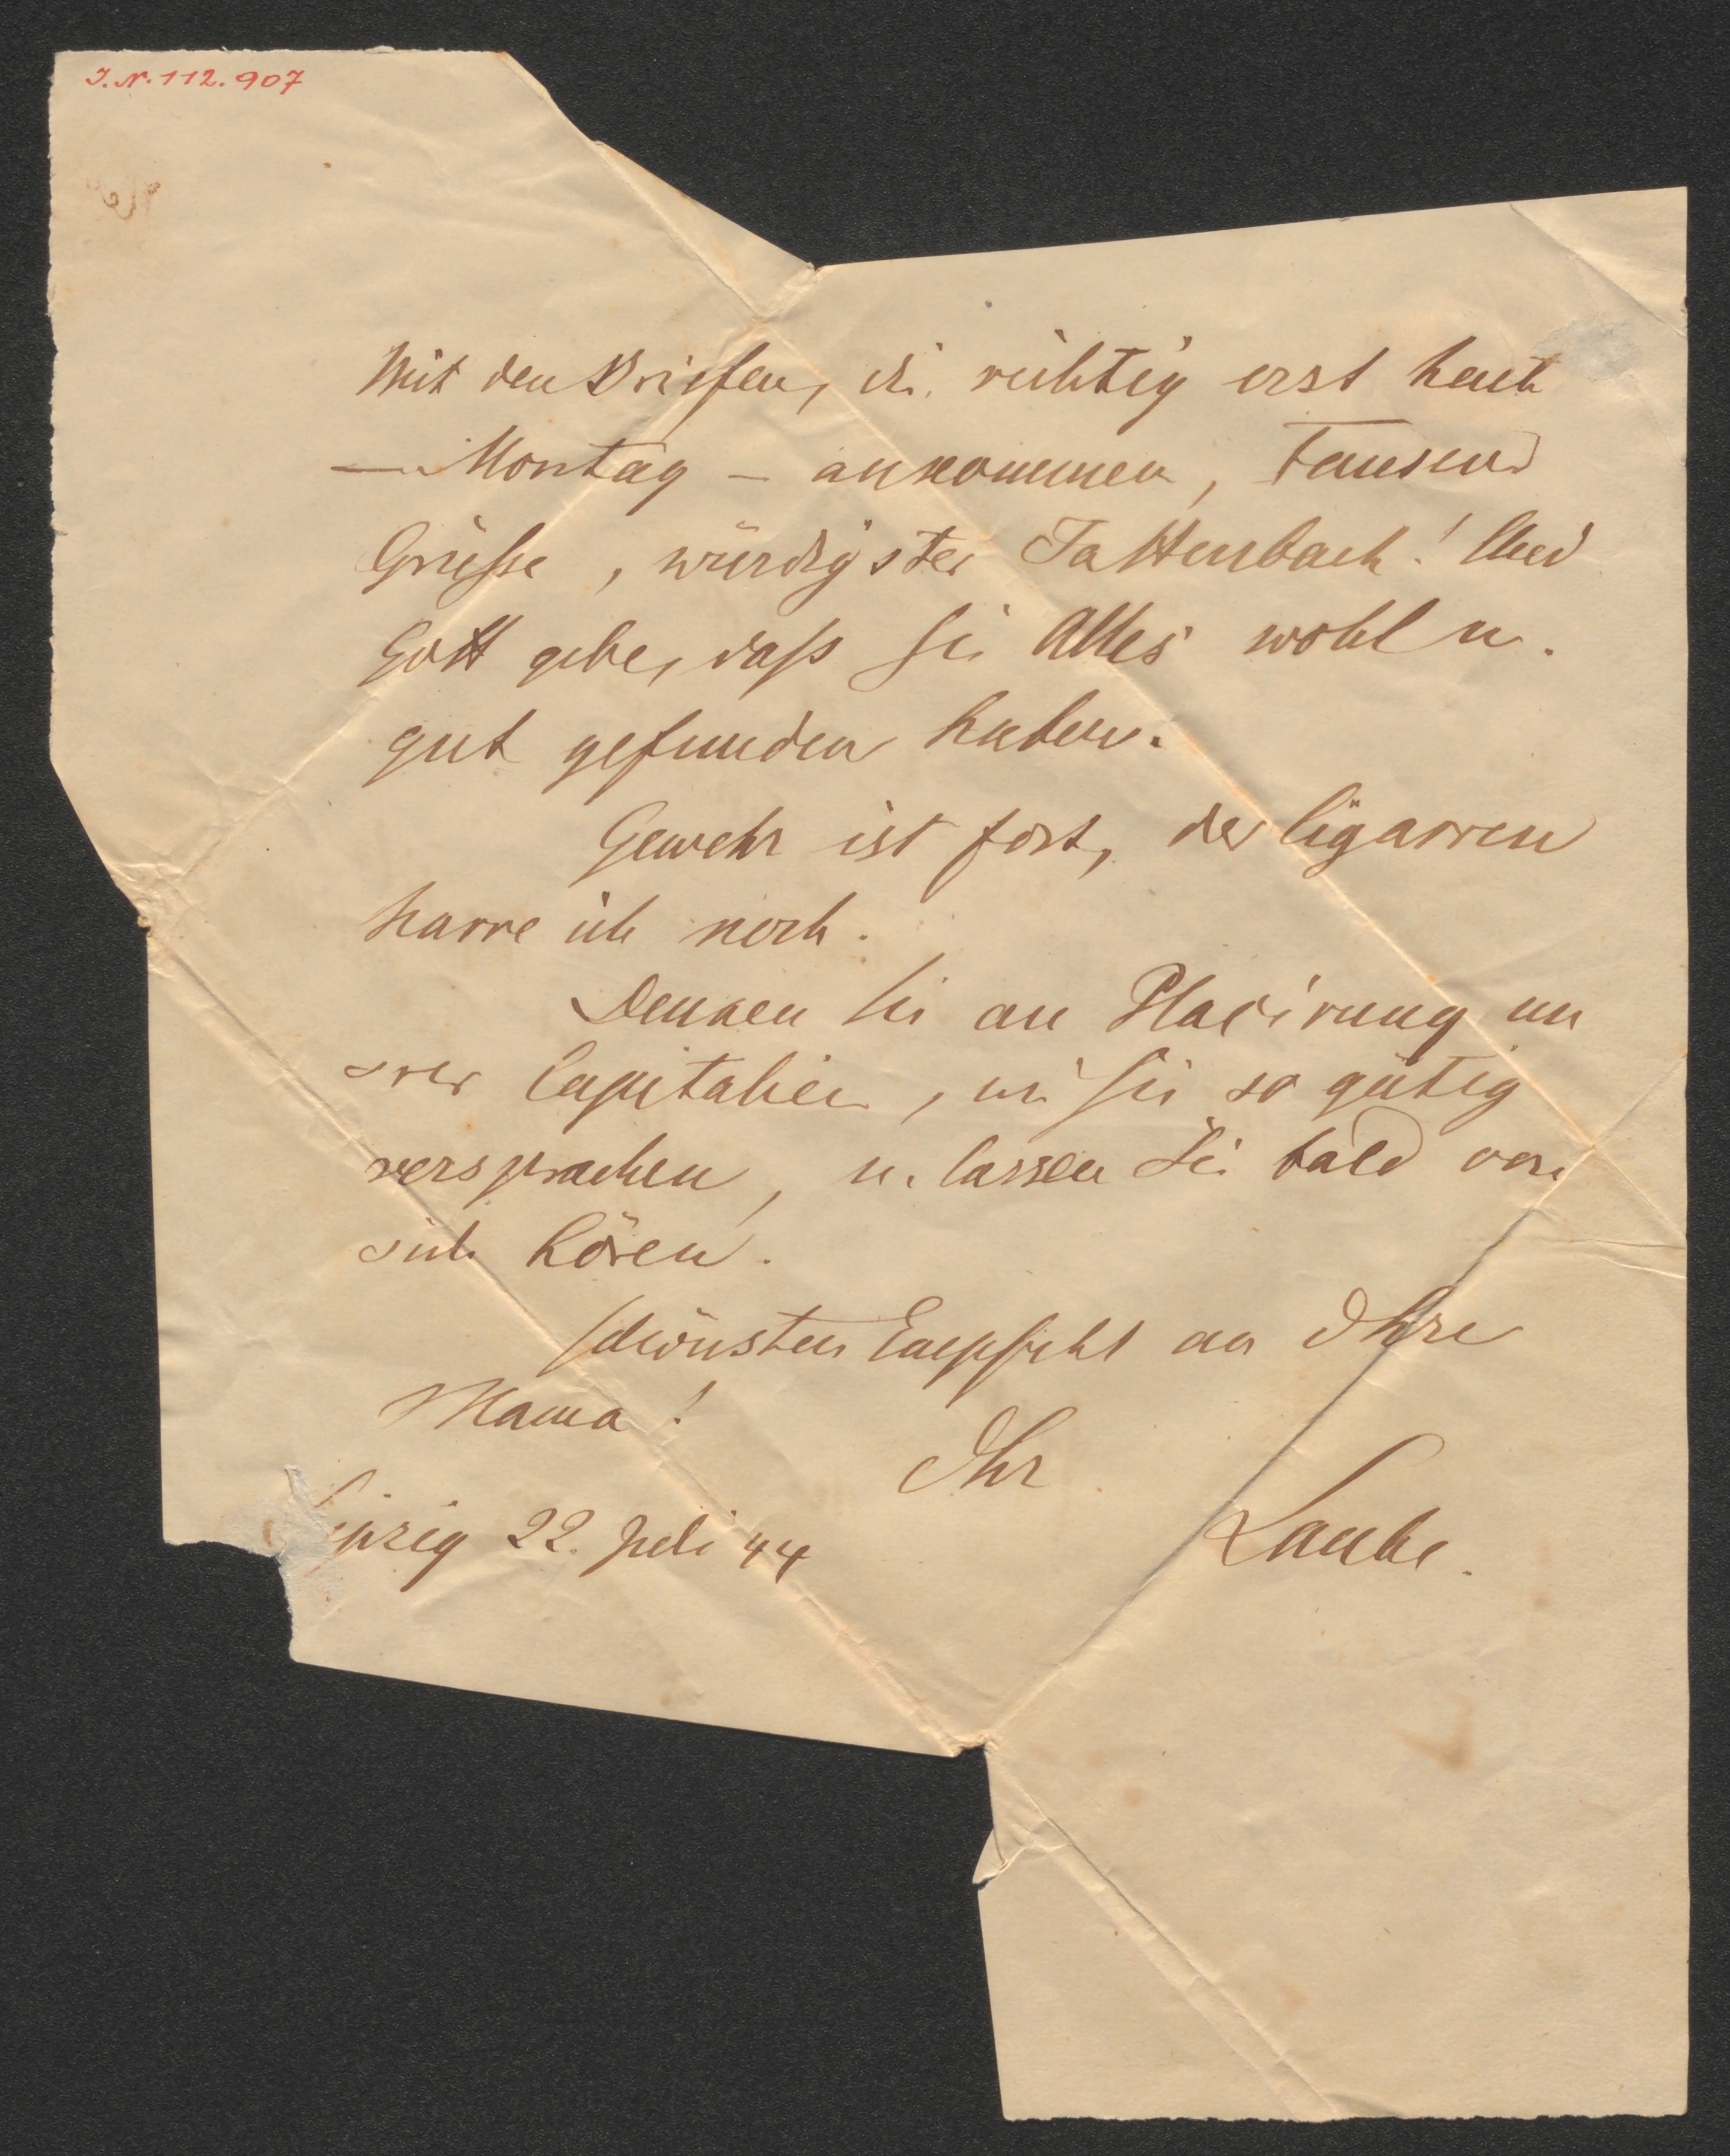 I.N. 112.907
Mit den Briefen, die richtig erst heute
— Montag — ankommen, tausend
Grüsse, würdigster Tattenbach! Und
Gott gebe, dass Sie Alles wohl u.
gut gefunden haben.
Gewehr ist fort, der Cigarren
harre ich noch.
Denken Sie an Placirung un
srer Capitalien, wie Sie so gütig
versprachen, u. lassen Sie bald von
sich hören.
Schönsten Empfehl an Ihre
Mama!
Ihr
ipzig 22. Juli 44
Laube.